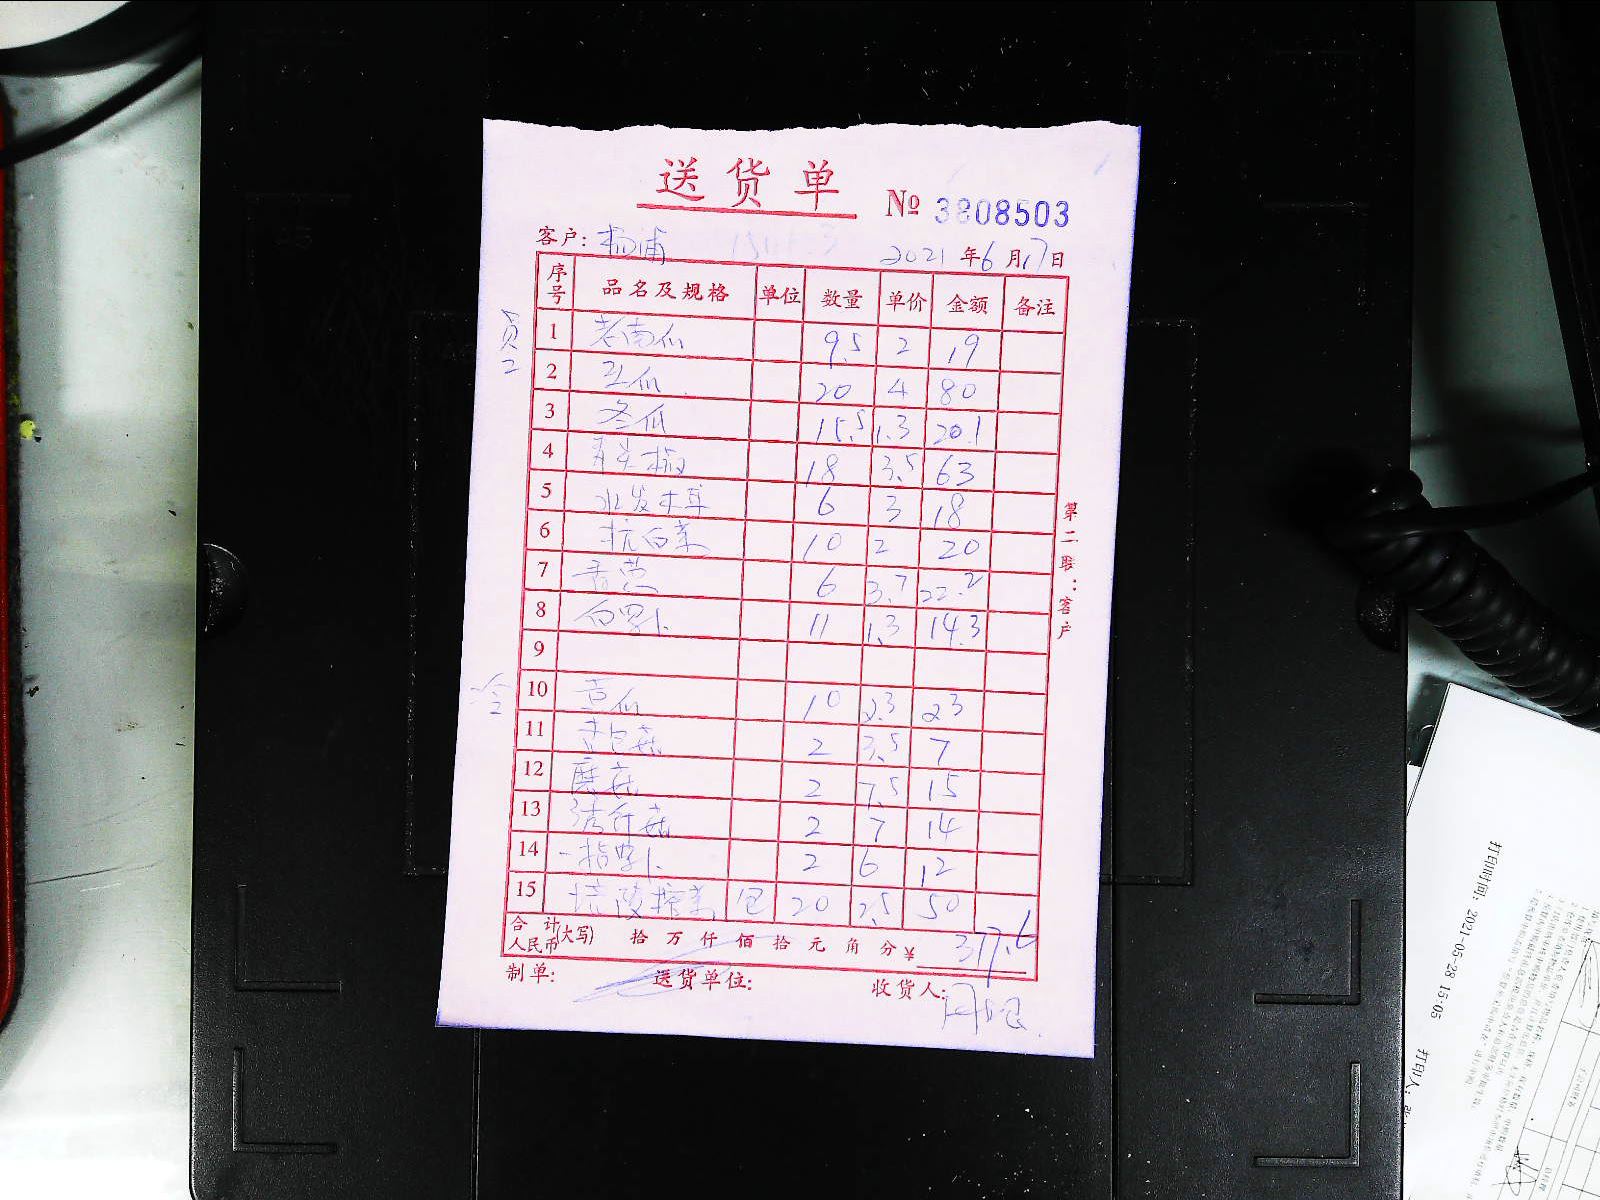 送货单 № 3808503
客户: 杨浦 2021年6月17日
序号 品名及规格 单位 数量 单价 金额 备注
员工
1 老南瓜 9.5 2 19
2 玉瓜 20 4 80
3 冬瓜 15.5 1.3 20.1
4 青尖椒 18 3.5 63
5 水发木耳 6 3 18
6 杭白菜 10 2 20
7 香葱 6 3.7 22.2
8 白罗卜 11 1.3 14.3
9
10 黄瓜 10 2.3 23
11 杏包菇 2 3.5 7
12 蘑菇 2 7.5 15
13 2 7 14
14 一指罗卜 2 6 12
15 涪陵榨菜 包 20 2.5 50
合计人民币(大写) 拾 万 仟 佰 拾 元 角 分 ¥ 317.6
制单: 送货单位: 收货人:
第二联:客户
打印时间: 2021-05-28 15:05 打印人: